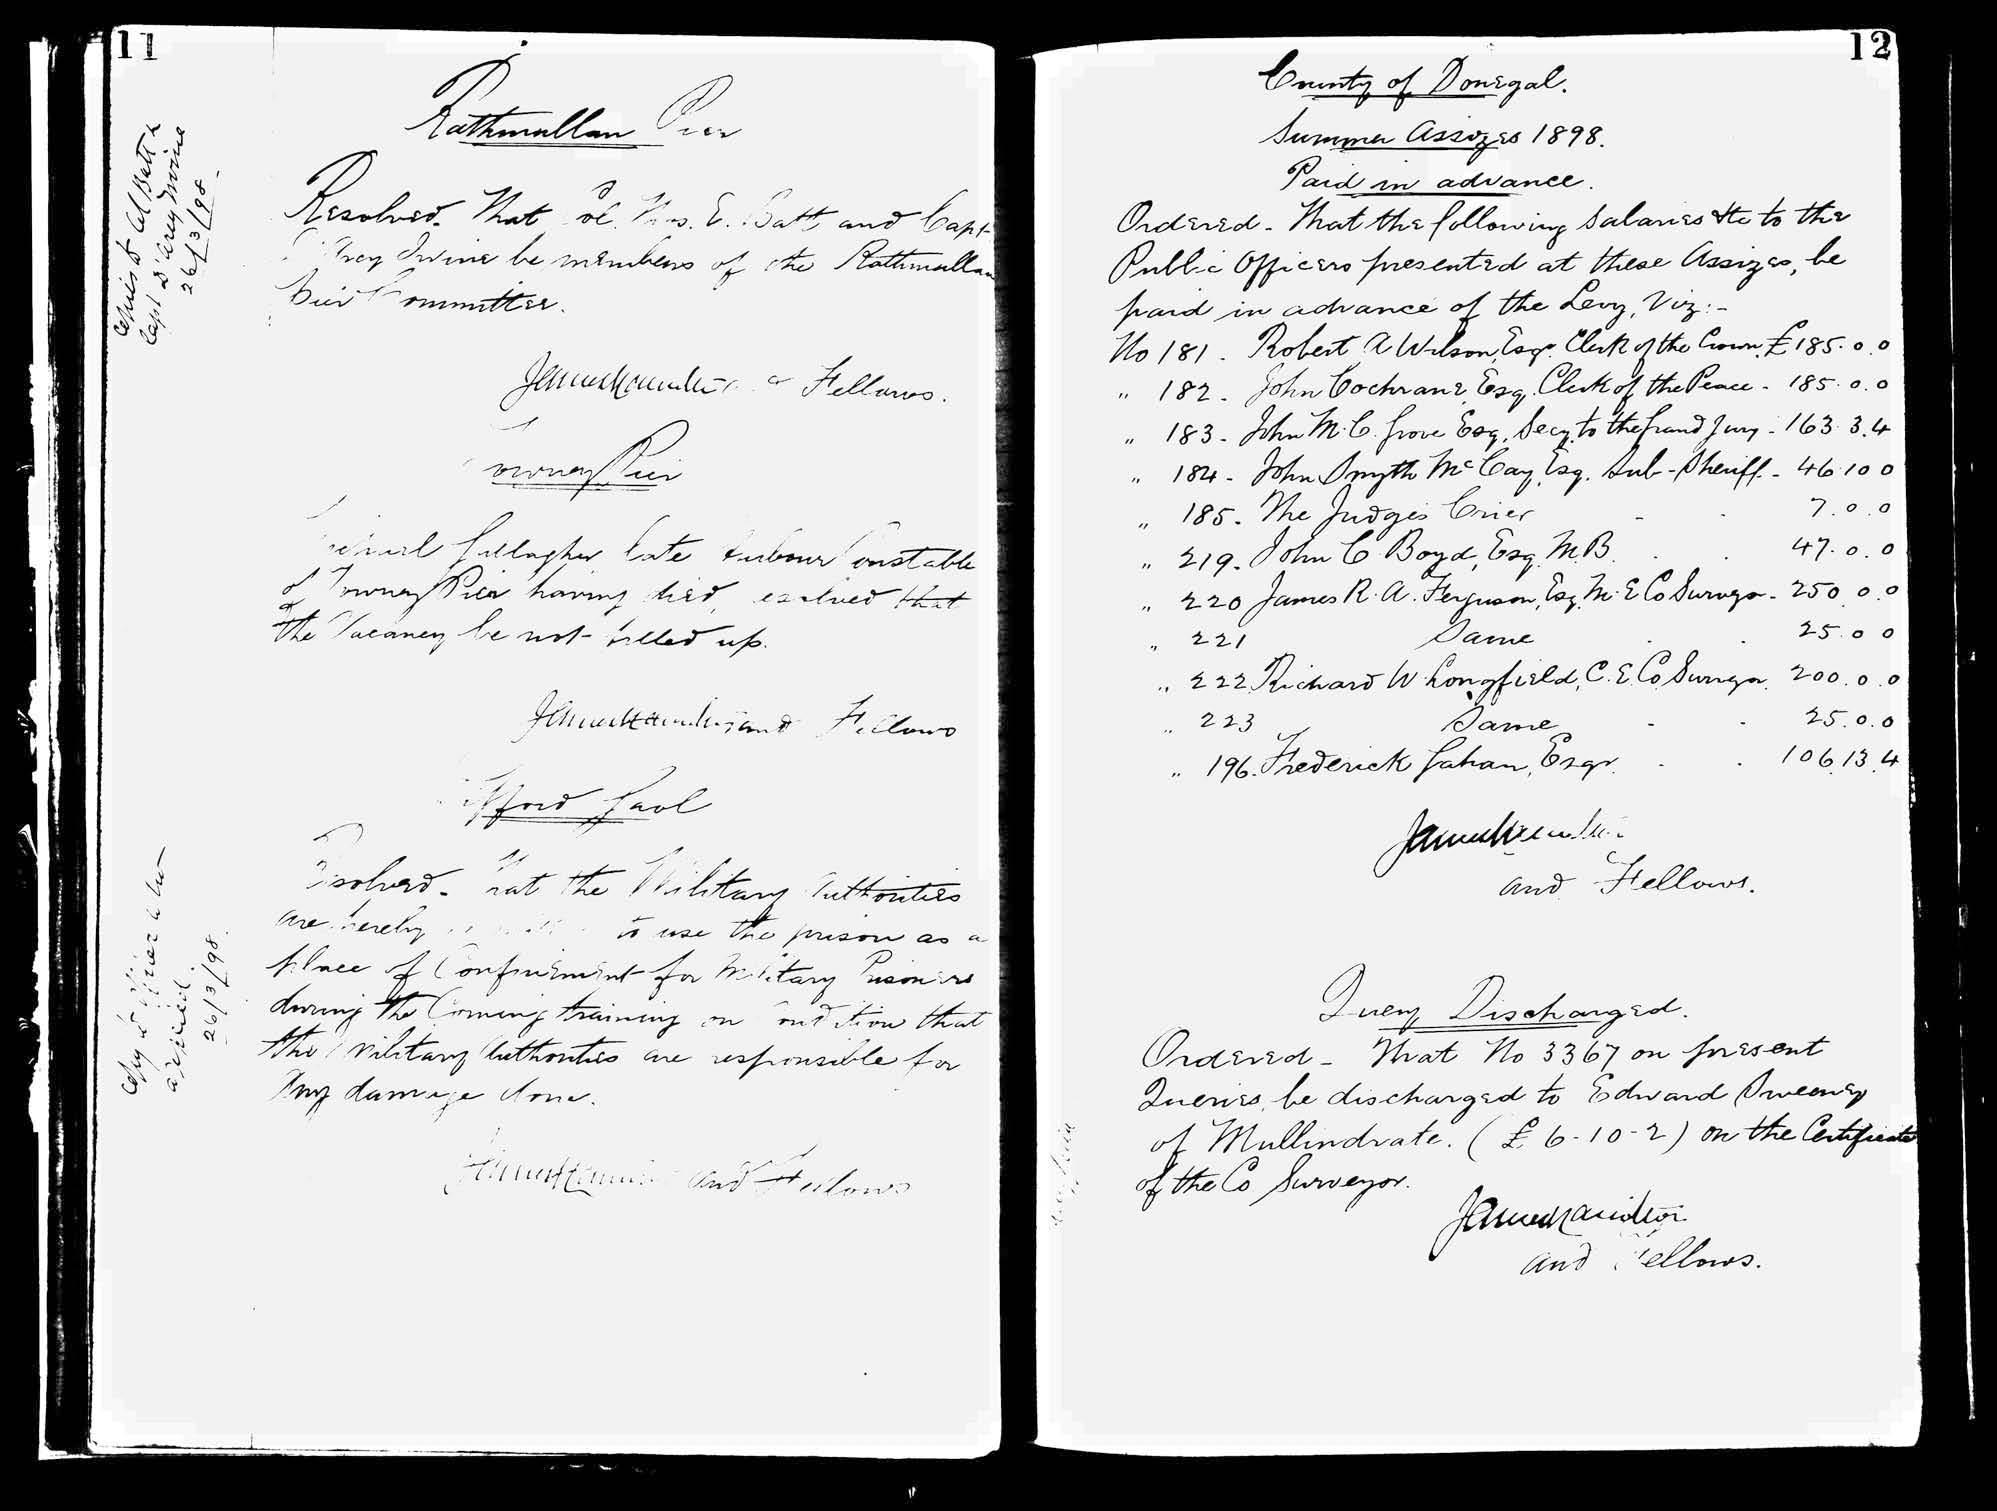 11
Rathmullan Pier
Resolved. That Col. Thos. E. Batt and Capt
Irvine be members of the Rathmullan
Pier Committee.
and Fellows.
Pier
Gallagher late Harbour Constable
of Pier having died, resolved that
the Vacancy be not filled up.
and Fellows
Lifford Gaol
Resolved. That the Military Authorities
are hereby to use the prison as a
place of Confinement for Military Prisoners
during the Coming training on Condition that
the Military Authorities are responsible for
any damage done.
and Fellows
Col Batt &
Capt Irvine
26/3/98
Copy to
26/3/98.
12
County of Donegal.
Summer Assizes 1898.
Paid in advance.
Ordered - That the following Salaries &c to the
Public Officers presented at these Assizes, be
paid in advance of the Levy, Viz:-
No 181. Robert A Wilson, Esqr. Clerk of the Crown £185.0.0
" 182. John Cochrane, Esq. Clerk of the Peace - 185.0.0
" 183. John M. C. Grove Esq, Secy. to the Grand Jury - 163.3.4
" 184. John Smyth McCay, Esq. Sub-Sheriff - 46.10.0
" 185. The Judges Crier - - 7.0.0
" 219. John C Boyd, Esq. M.B. . . 47.0.0
" 220 James R. A. Ferguson, Esq. M.E Co Surveyor - 250.0.0
" 221 Same . . 25.0.0
" 222 Richard W. Longfield, C.E. Co Surveyor. 200.0.0
" 223 Same - - 25.0.0
" 196. Frederick Gahan, Esqr. . . 106.13.4
James Hamilton
and Fellows.
Query Discharged.
Ordered - That No 3367 on present
Queries, be discharged to Edward Sweeney
of Mullindrate. (£ 6-10-2) on the Certificate
of the Co Surveyor.
James Hamilton
and Fellows.